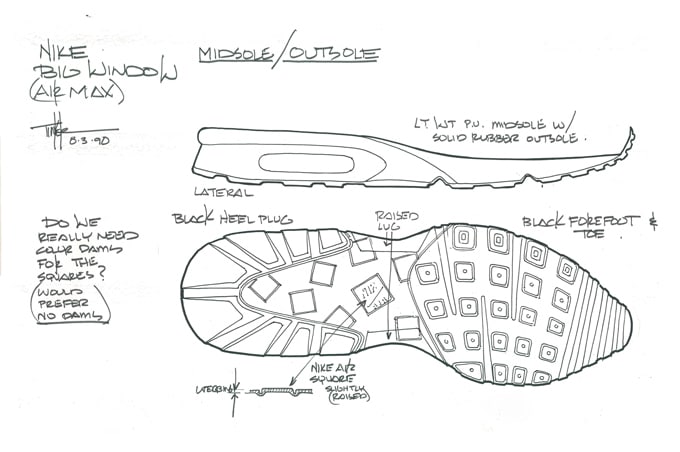 NIKE
BIG WINDOW
(AIR MAX)
MIDSOLE/OUTSOLE
8·3·90
LT WT P.U. MIDSOLE W/
SOLID RUBBER OUTSOLE.
LATERAL
DO WE
REALLY NEED
COLOR DAMS
FOR THE
SQUARES?
WOULD
PREFER
NO DAMS
BLACK HEEL PLUG
RAISED
LUG
BLACK FOREFOOT &
TOE.
NIKE AIR
SQUARE
SLIGHTLY
(RAISED)